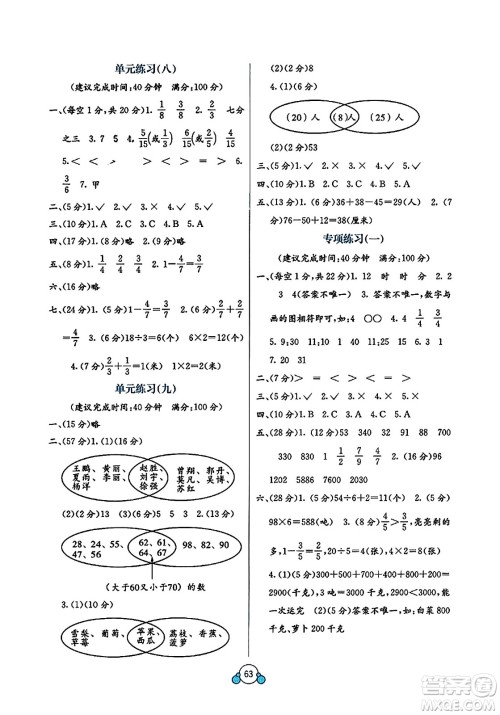 单元练习(八)
(建议完成时间:40分钟 满分:100分)
一、(每空1分,共20分)1. 1/8 3/8 2. 七分
之三 3. 7 5 4. 5/15(或1/3) 6/15(或2/5)
5. < = < > = > > = 6.
3/6 7. 甲
二、(5分)1. ✓ 2. ✓ 3. × 4. × 5. ✓
三、(10分)1. C 2. C 3. B 4. B 5. A
四、(17分)1. 略 2. (9分)略
五、(8分)1/4 2/4 2/7 4/7
六、(16分)略
七、1. (5分)略 2. (5分)1-4/7=3/7 3/7<
4/7 3. (6分)18÷3=6(个) 6×2=12(个)
4. (7分)2/3+1/3=1(米) 1×2=2(米)
单元练习(九)
(建议完成时间:40分钟 满分:100分)
一、(15分)略
二、(57分)1. (1)(16分)
王鹏、黄丽、
夏雨、李丽、
杨洋
赵胜、
刘宇、
徐强
曾翔、郭丹、
莫凡、吴博、
苏红
(2)(2分)13 (3)(2分)5 2. (1)(9分)
28、24、55、
47、56
62、61、
64、67
98、82、90
(大于60又小于70)的数
3. (1)(10分)
雪梨、
葡萄、
草莓
苹果、
西瓜
荔枝、香蕉、
菠萝
(2)(2分)8
4. (1)(6分)
(20)人
(8)人
(25)人
(2)(2分)53
三、(5分)1. ✓ 2. × 3. × 4. ✓ 5. ✓
四、(10分)1. B 2. A 3. B 4. B 5. A
五、(13分)1. (6分)36+38-45=29(人) 2.
(7分)76-50+12=38(厘米)
专项练习(一)
(建议完成时间:40分钟 满分:100分)
一、(每空1分,共22分)1. 12 时 时 分 2. 2
3 4(答案不唯一) 3. (答案不唯一,数字与
画的图相符即可,如) 4 ○○ 4. 1/4 3/4
5. 9;30 11;05 11;45 6. 56 32
7. 20 31
二、(7分)> = < < > = >
三、(5分)1. × 2. × 3. ✓ 4. ✓ 5. ×
四、(10分)1. B 2. B 3. C 4. B 5. A
五、(28分)1. (10分)540 340 32 91 888
700 830 1 1/9 5/7 2. (18分)96
1202 5898 256 720 360
六、(28分)1. (5分)54÷6=9 2. (5分)
98×6=588(吨) 3. (8分)4/5>3/5,亮亮剩的
多,1-2/5=3/5,20÷5=4(张) 4×2=8(张)
4. (1)(5分)300+450+320+1200+630=
2900(千克) 3吨=3000千克>2900千克,能
一次运完 (2)(5分)答案不唯一,如:白菜800千
克、萝卜200千克
63
答案圈
MXQE.COM